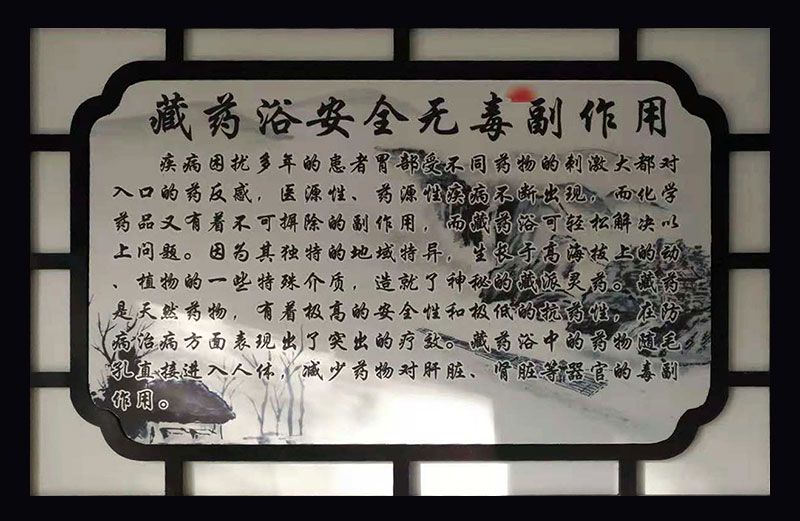 藏药浴安全无毒副作用
疾病困扰多年的患者胃部受不同药物的刺激大都对
入口的药反感，医源性、药源性疾病不断出现，而化学
药品又有着不可摒除的副作用，而藏药浴可轻松解决以
上问题。因为其独特的地域特异，生长于高海拔上的动
、植物的一些特殊介质，造就了神秘的藏派灵药。藏药
是天然药物，有着极高的安全性和极低的抗药性，在防
病治病方面表现出了突出的疗效。藏药浴中的药物随毛
孔直接进入人体，减少药物对肝脏、肾脏等器官的毒副
作用。